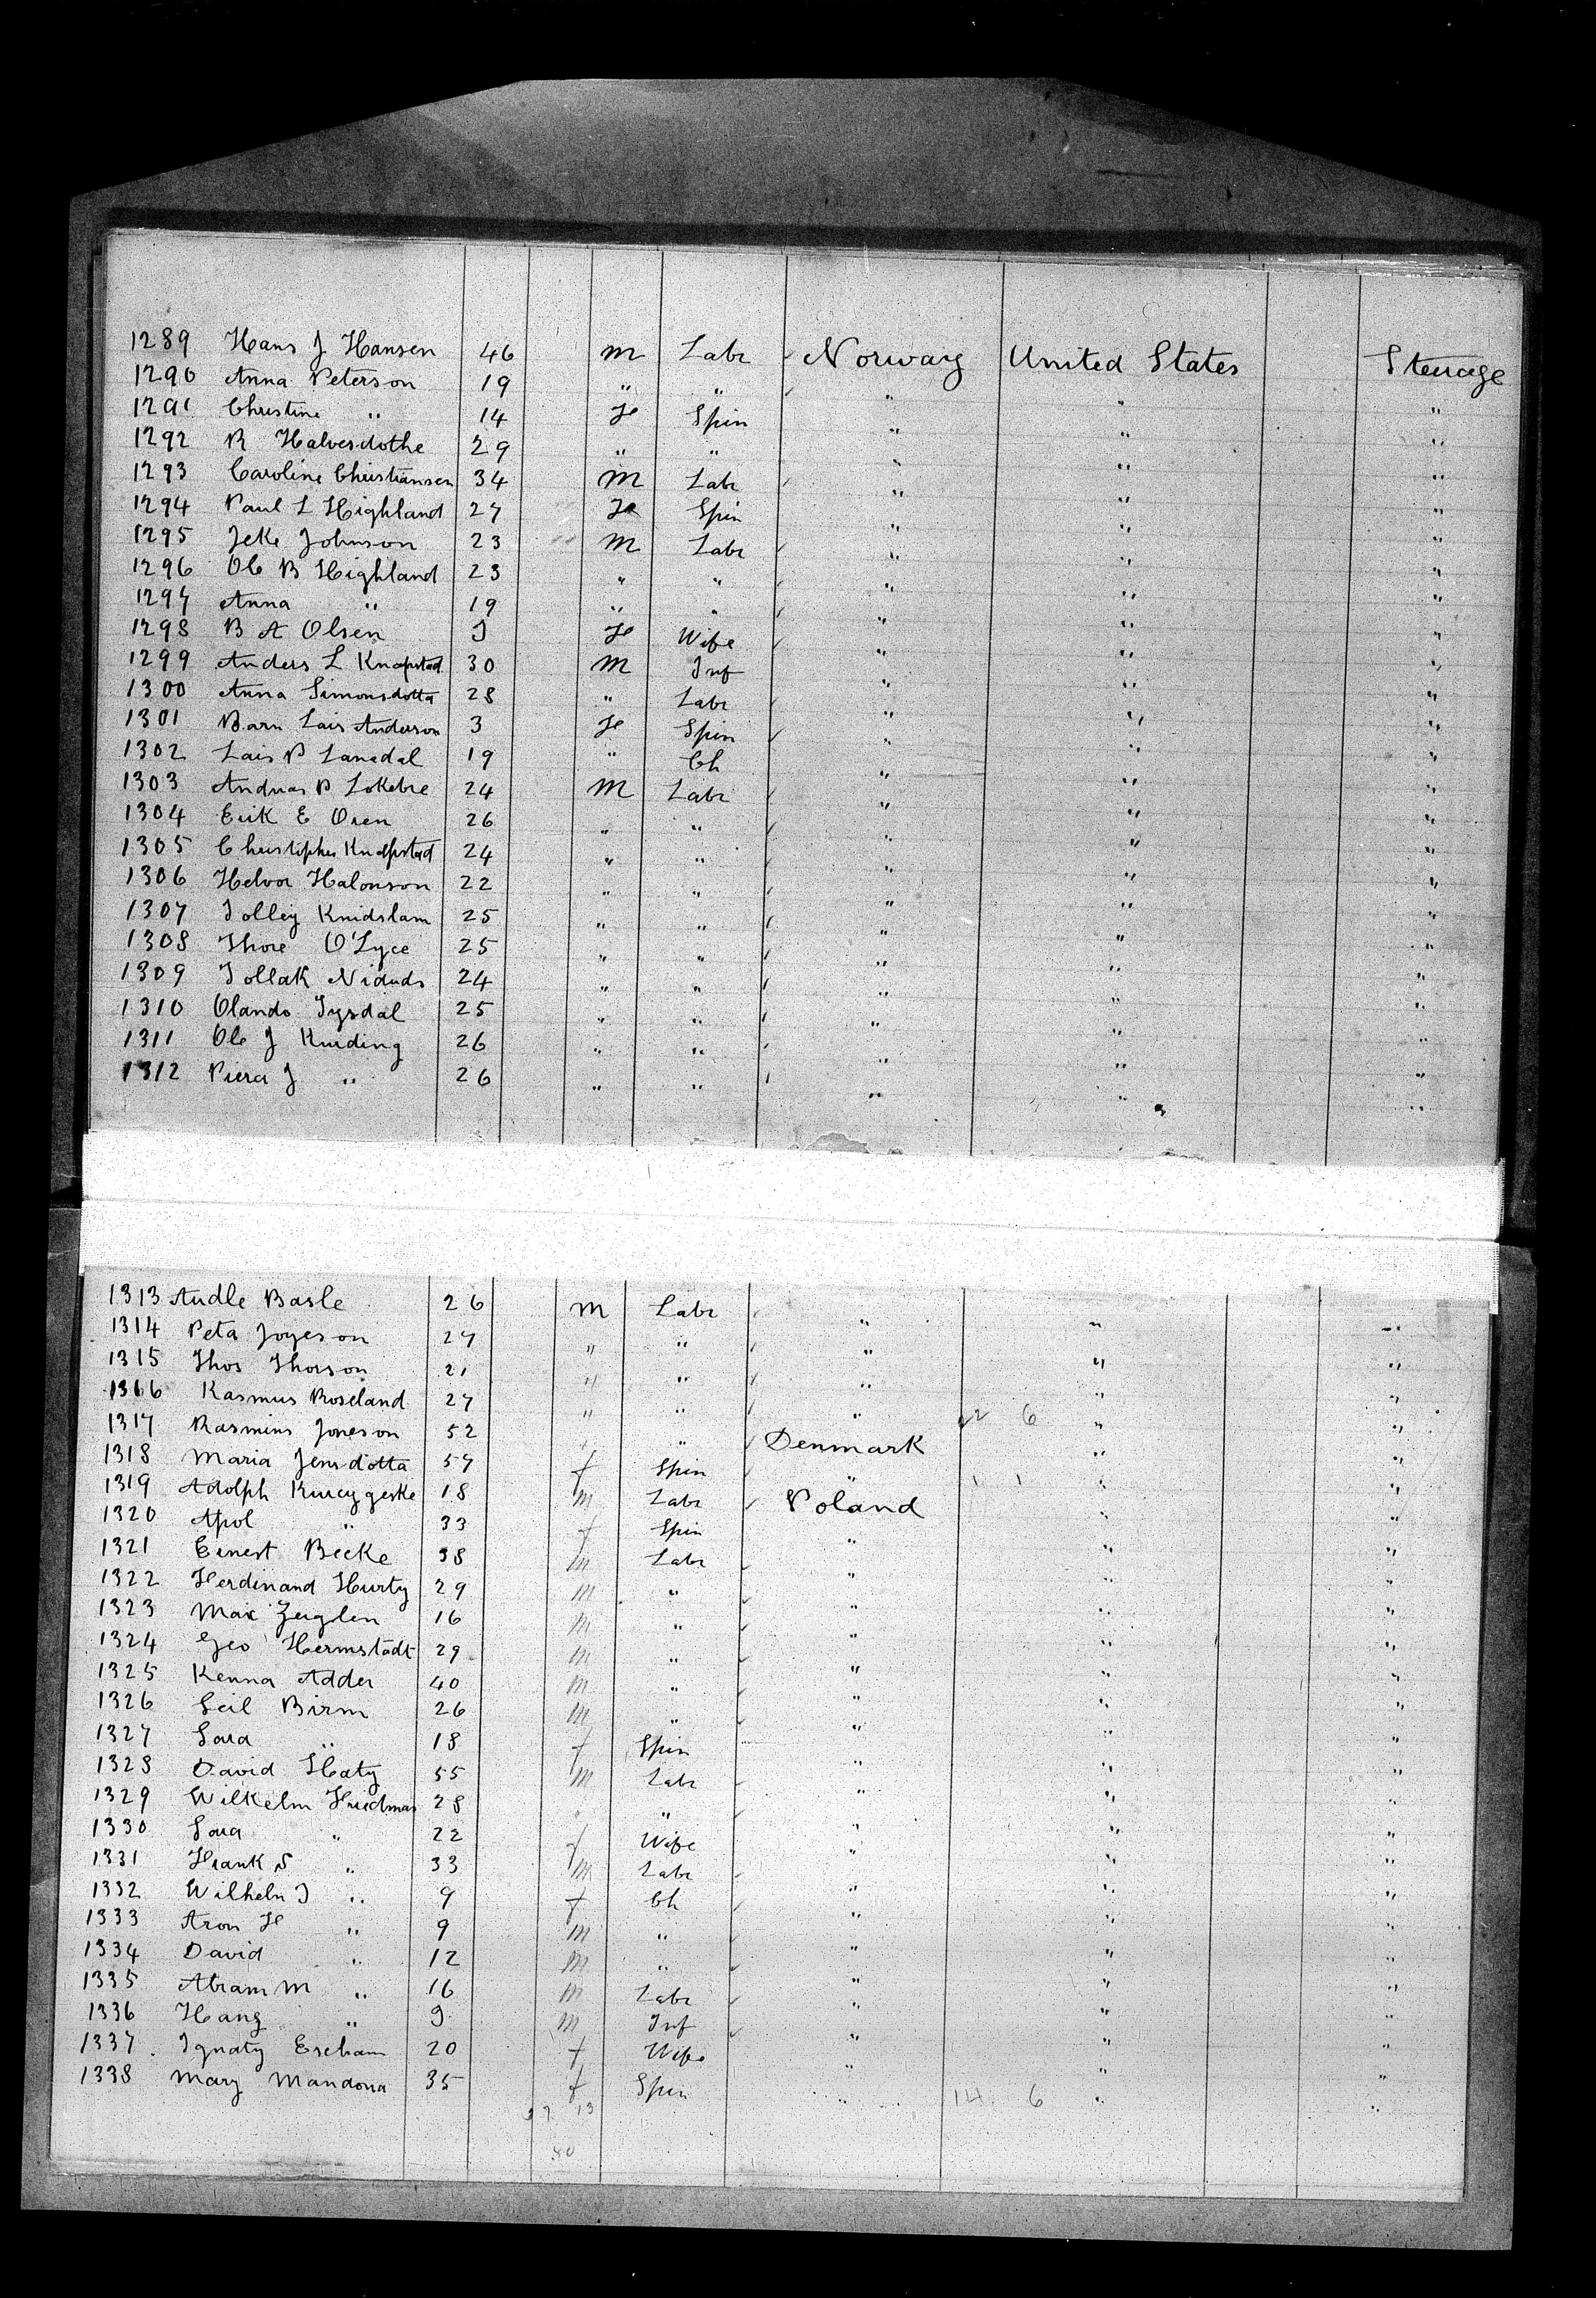 1289 Hans J Hansen 46 M Labr Norway United States Steerage
1290 Anna Peterson 19 " " " " "
1291 Christine " 14 Fe Spin " " "
1292 B Halvesdothe 29 " " " " "
1293 Caroline Christiansen 34 M Labr " " "
1294 Paul L Highland 27 Fe Spin " " "
1295 Jeke Johnson 23 M Labr " " "
1296 Ole B Highland 23 " " " " "
1297 Anna " 19 " " " " "
1298 B A Olsen Fe Wife " " "
1299 Anders L Knapstad 30 M Inf " " "
1300 Anna Simonsdotta 28 " Labr " " "
1301 Barn Lais Anderson 3 Fe Spin " " "
1302 Lais B Lanadal 19 " Ch " " "
1303 Andreas B Lokebre 24 M Labr " " "
1304 Erik E Oren 26 " " " " "
1305 Christipher Knapstad 24 " " " " "
1306 Helvor Halonson 22 " " " " "
1307 Tolley Knidslam 25 " " " " "
1308 Thore O'Lyce 25 " " " " "
1309 Tollak Niduds 24 " " " " "
1310 Olando Tysdal 25 " " " " "
1311 Ole J Knuding 26 " " " " "
1312 Piera J " 26 " " " " "
1313 Audle Basle 26 M Labr " " "
1314 Peta Joyeson 27 " " " " "
1315 Thos Thorson 21 " " " " "
1316 Rasmus Roseland 27 " " " " "
1317 Rasmins Joneson 52 " " Denmark 22 6 " "
1318 Maria Jensdotta 57 f Spin " " "
1319 Adolph Kurcygeske 18 m Labr Poland 1 1 " "
1320 Apol " 33 f Spin " " "
1321 Ernest Becke 38 m Labr " " "
1322 Ferdinand Hurty 29 m " " " "
1323 Max Zeiglen 16 m " " " "
1324 Geo Hermstadt 29 m " " " "
1325 Kenna Adder 40 m " " " "
1326 Seil Birm 26 m " " " "
1327 Sara " 18 f Spin " " "
1328 David Haty 55 m Labr " " "
1329 Wilkelm Friedman 28 " " " " "
1330 Sara " 22 f Wife " " "
1331 Frank S " 33 m Labr " " "
1332 Wilheln J " 9 f Ch " " "
1333 Aron F " 9 m " " " "
1334 David " 12 m " " " "
1335 Abram M " 16 m Labr " " "
1336 Hang " 9 m Inf " " "
1337 Ignaty Escham 20 f Wife " " "
1338 Mary Mandona 35 f Spin " 14 6 " "
27 13
40